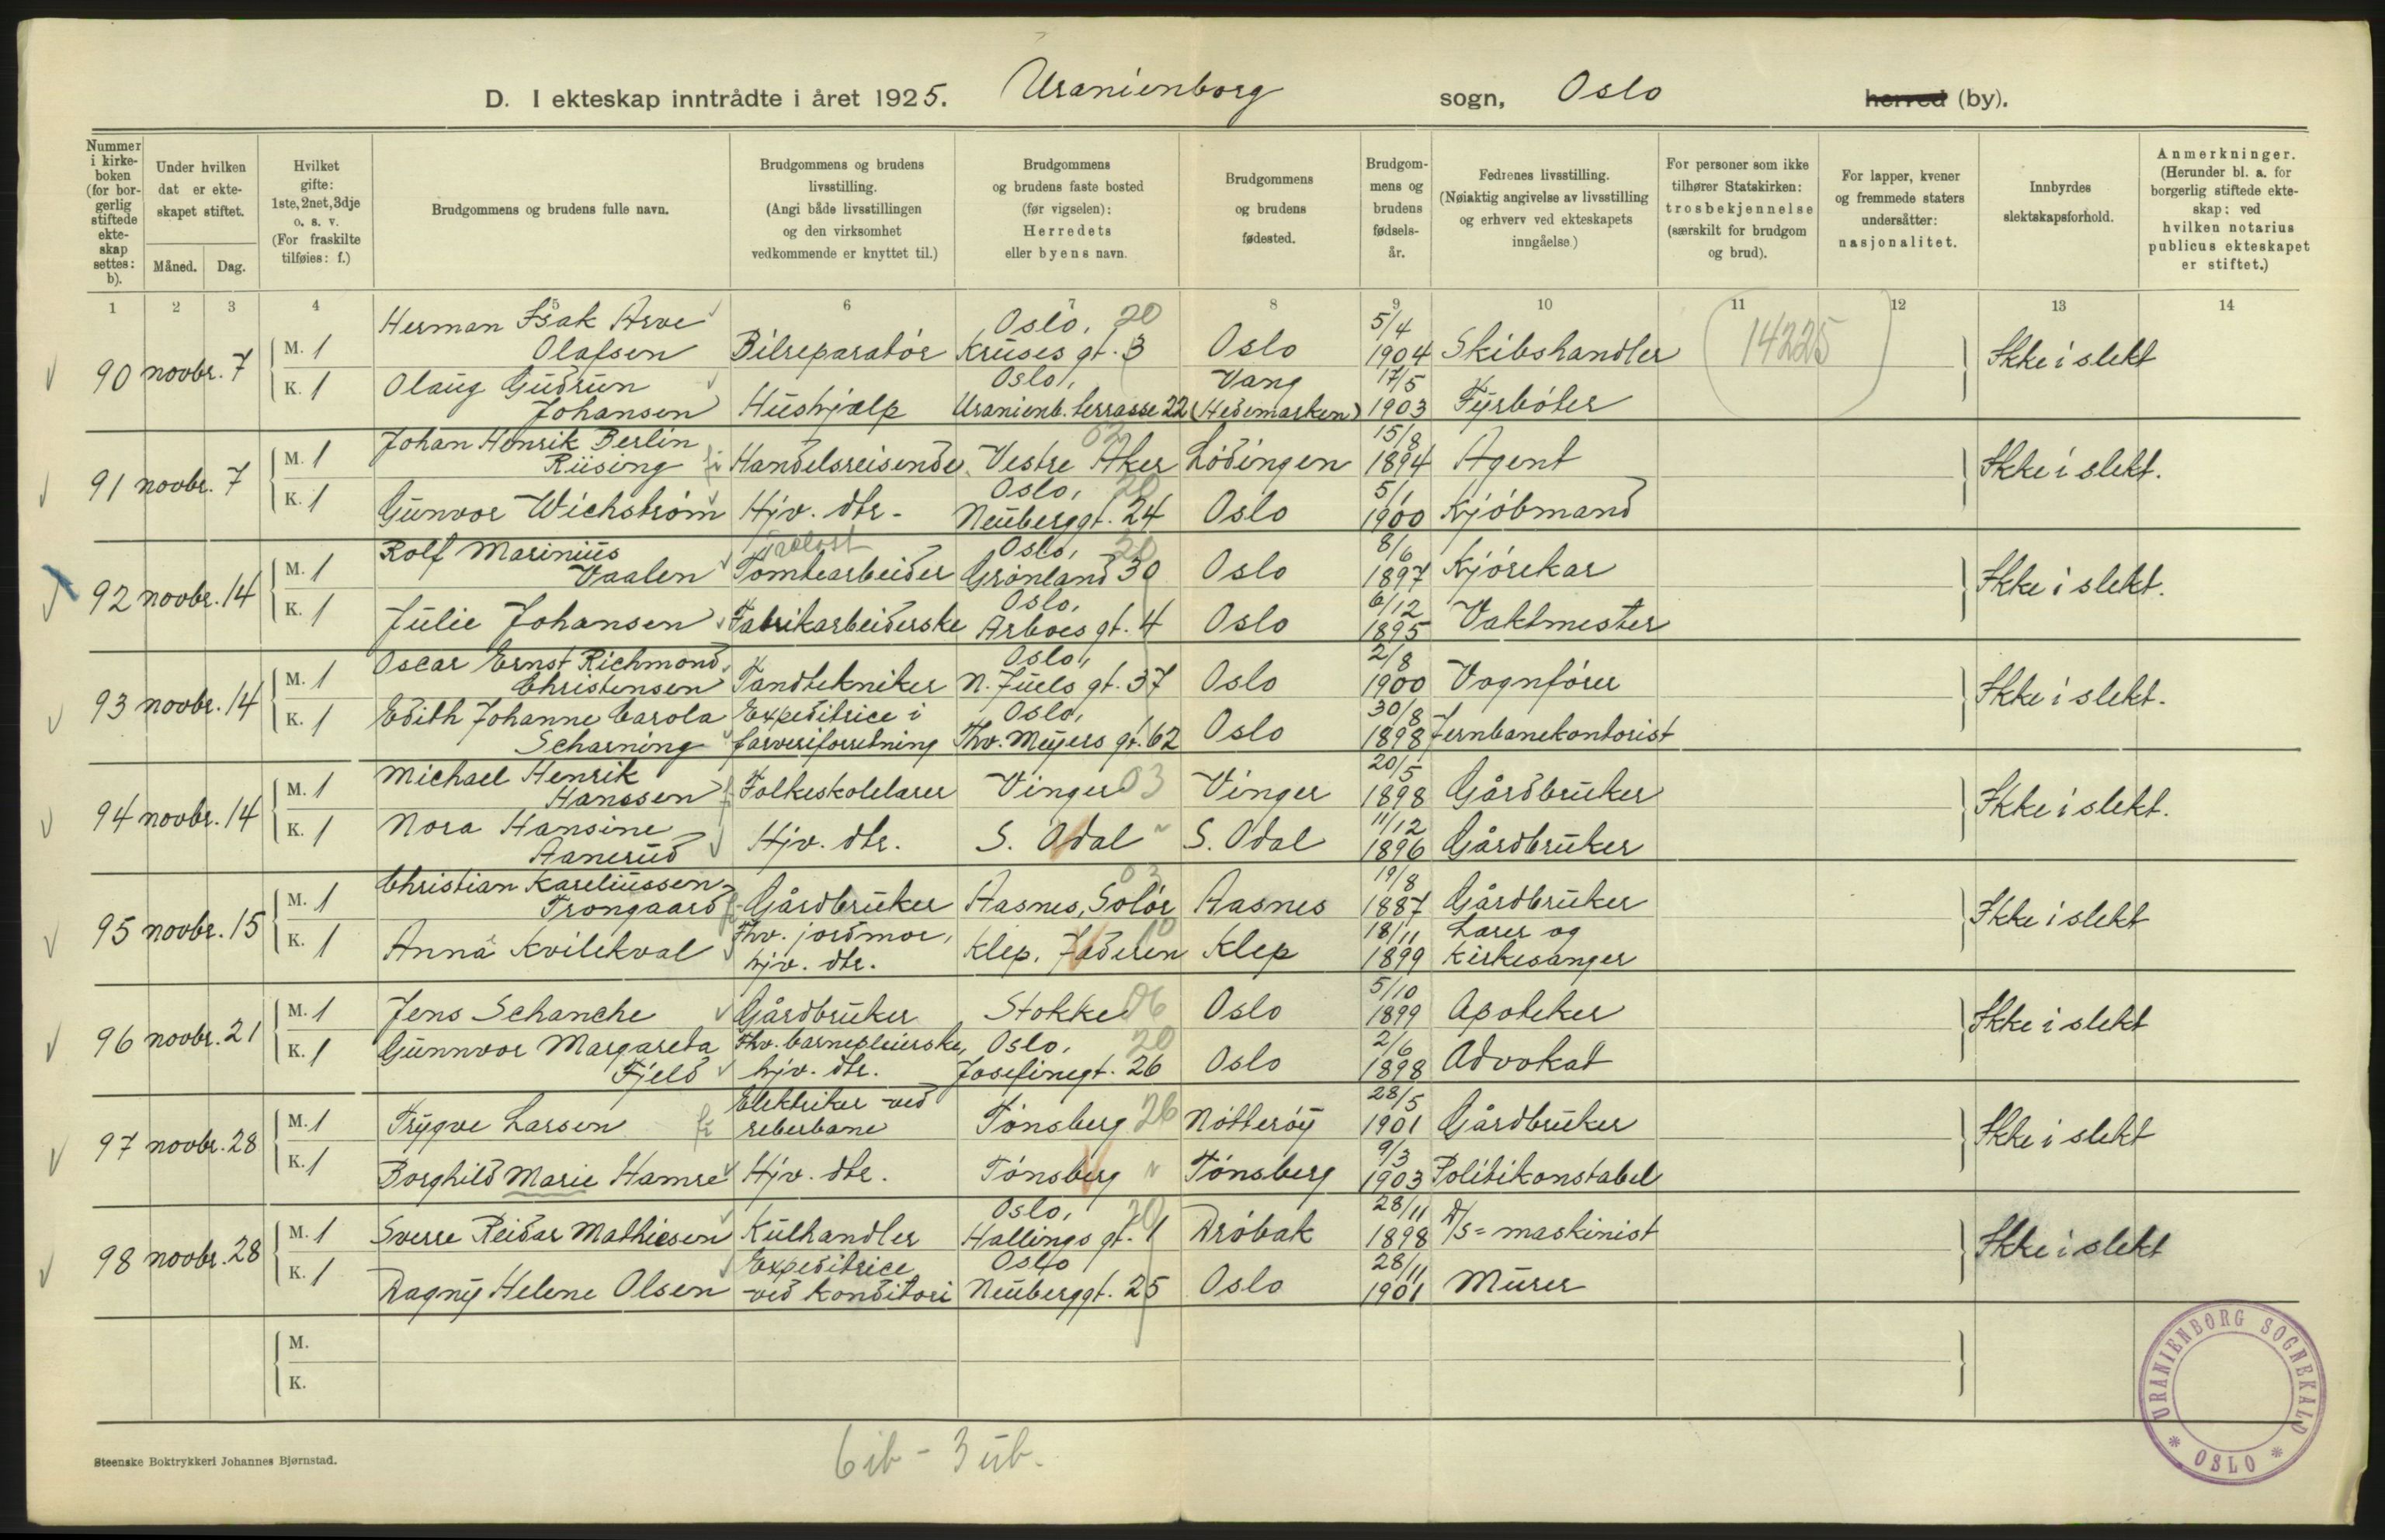 D. I ekteskap inntrådte i året 1925. Uranienborg sogn, Oslo herred (by).
Nummer i kirkeboken (for borgerlig stiftede ekteskap settes: b).
Under hvilken dat er ekteskapet stiftet.
Måned. Dag.
Hvilket gifte: 1ste, 2net, 3dje o. s. v. (For fraskilte tilføies: f.)
Brudgommens og brudens fulle navn.
Brudgommens og brudens livsstilling. (Angi både livsstillingen og den virksomhet vedkommende er knyttet til.)
Brudgommens og brudens faste bosted (før vigselen): Herredets eller byens navn.
Brudgommens og brudens fødested.
Brudgommens og brudens fødselsår.
Fedrenes livsstilling. (Nøiaktig angivelse av livsstilling og erhverv ved ekteskapets inngåelse.)
For personer som ikke tilhører Statskirken: trosbekjennelse (særskilt for brudgom og brud).
For lapper, kvener og fremmede staters undersåtter: nasjonalitet.
Innbyrdes slektskapsforhold.
Anmerkninger. (Herunder bl. a. for borgerlig stiftede ekteskap: ved hvilken notarius publicus ekteskapet er stiftet.)
1 2 3 4 5 6 7 8 9 10 11 12 13 14
90 novbr. 7 M. 1 Herman Isak Arve Olafsen Bilreparatör Oslo, 20 Kruses gt. 3 Oslo 5/4 1904 Skibshandler (14225) Ikke i slekt
K. 1 Olaug Gudrun Johansen Hushjælp Oslo, Uranienb. terrasse 22 Vang (Hedemarken) 17/5 1903 Fyrböter
91 novbr. 7 M. 1 Johan Henrik Berlin Riising Handelsreisende Vestre Aker Lödingen 15/8 1894 Agent Ikke i slekt.
K. 1 Gunvor Wichström Hjv. dtr. Oslo, 20 Neuberggt. 24 Oslo 5/1 1900 Kjöbmand
92 novbr. 14 M. 1 Rolf Marinius Vaalen Tomtearbeider Oslo, 20 Grönland 30 Oslo 8/6 1897 Kjörekar Ikke i slekt.
K. 1 Julie Johansen Fabrikarbeiderske Oslo, Arboes gt. 4 Oslo 6/12 1895 Vaktmester
93 novbr. 14 M. 1 Oscar Ernst Richmond Christensen Tandtekniker Oslo, N. Juels gt. 37 Oslo 2/8 1900 Vognförer Ikke i slekt.
K. 1 Edith Johanne Carola Scharning Expeditrice i farveriforretning Oslo, Thv. Meyers gt. 62 Oslo 30/8 1898 Jernbanekontorist
94 novbr. 14 M. 1 Michael Henrik Hanssen Folkeskolelærer Vinger 03 Vinger 20/5 1898 Gårdbruker Ikke i slekt.
K. 1 Nora Hansine Aanerud Hjv. dtr. S. Odal " S. Odal 11/12 1896 Gårdbruker
95 novbr. 15 M. 1 Christian Kareliussen Trongaard Gårdbruker Aasnes, Solör 03 Aasnes 19/8 1887 Gårdbruker Ikke i slekt
K. 1 Anna Kvilekval Fhv. jordmor, hjv. dtr. Klep, Jæderen 10 Klep 18/11 1899 Lærer og kirkesanger
96 novbr. 21 M. 1 Jens Schanche Gårdbruker Stokke 06 Oslo 5/10 1899 Apoteker Ikke i slekt
K. 1 Gunnvor Margareta Fjeld Fhv. barnepleierske, hjv. dtr. Oslo, 20 Josefinegt. 26 Oslo 2/6 1898 Advokat
97 novbr. 28 M. 1 Trygve Larsen Elektriker ved reberbane Tönsberg 26 Nötteröy 28/5 1901 Gårdbruker Ikke i slekt
K. 1 Borghild Marie Hamre Hjv. dtr. Tönsberg " Tönsberg 9/3 1903 Politikonstabel
98 novbr. 28 M. 1 Sverre Reidar Mathiesen Kulhandler Oslo, 20 Hallings gt. 1 Dröbak 28/11 1898 D/S = maskinist Ikke i slekt
K. 1 Dagny Helene Olsen Expeditrice ved konditori Oslo Neuberggt. 25 Oslo 28/11 1901 Murer
M.
K.
Steenske Boktrykkeri Johannes Bjørnstad.
6 ib - 3 ub.
URANIENBORG SOGNEKALD * OSLO *